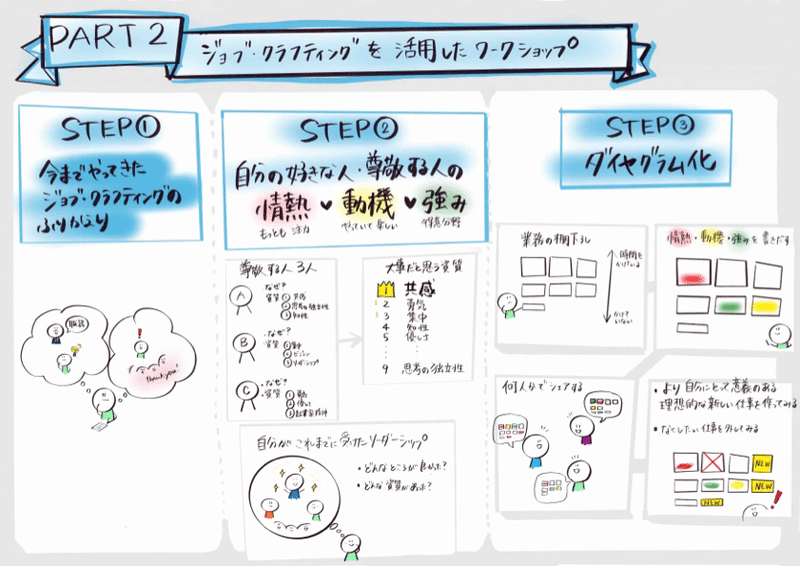 PART 2
ジョブ・クラフティングを活用したワークショップ
STEP①
今までやってきた
ジョブ・クラフティングの
ふりかえり
Thank you!
STEP②
自分の好きな人・尊敬する人の
情熱♥動機♥強み
もっとも 注力
やっていて楽しい
得意分野
尊敬する人3人
A
・なぜ?
資質 ①共感
②思考の独立性
③知性
B
・なぜ?
資質 ①
②ビジョン
③リーダーシップ
C
・なぜ?
・資質 ①
②優しさ
③
大事だと思う資質
1 共感
2 勇気
3 集中
4 知性
5 優しさ
9 思考の独立性
自分がこれまでに受けたリーダーシップ
・どんなところが良かった?
・どんな資質があった?
STEP③
ダイヤグラム化
業務の棚下ろし
時間を
かけている
かけて
いない
情熱・動機・強みを書きだす
何人かでシェアする
・より自分にとって意義のある
理想的な新しい仕事を作ってみる
・なくしたい仕事を外してみる
NEW
NEW
NEW